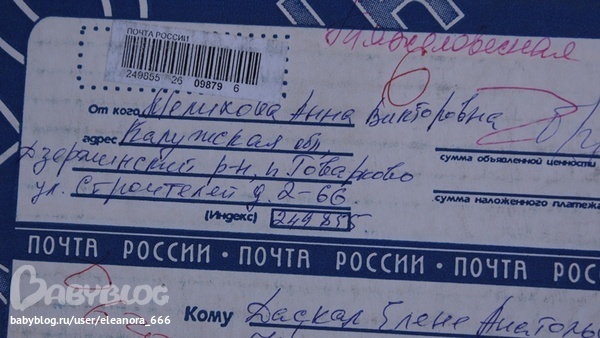 ПОЧТА РОССИИ
249855 26 09879 6
От кого Меликова Анна Викторовна
адрес Калужская обл,
Дзержинский р-н, п Товарково
ул. Строителей д. 2-66
сумма объявленной ценности
сумма наложенного платежа
(Индекс) 249855
ПОЧТА РОССИИ • ПОЧТА РОССИИ • ПОЧТА РОС
BABYBLOG
Кому Даскал Елене Анатоль
babyblog.ru/user/eleanora_666